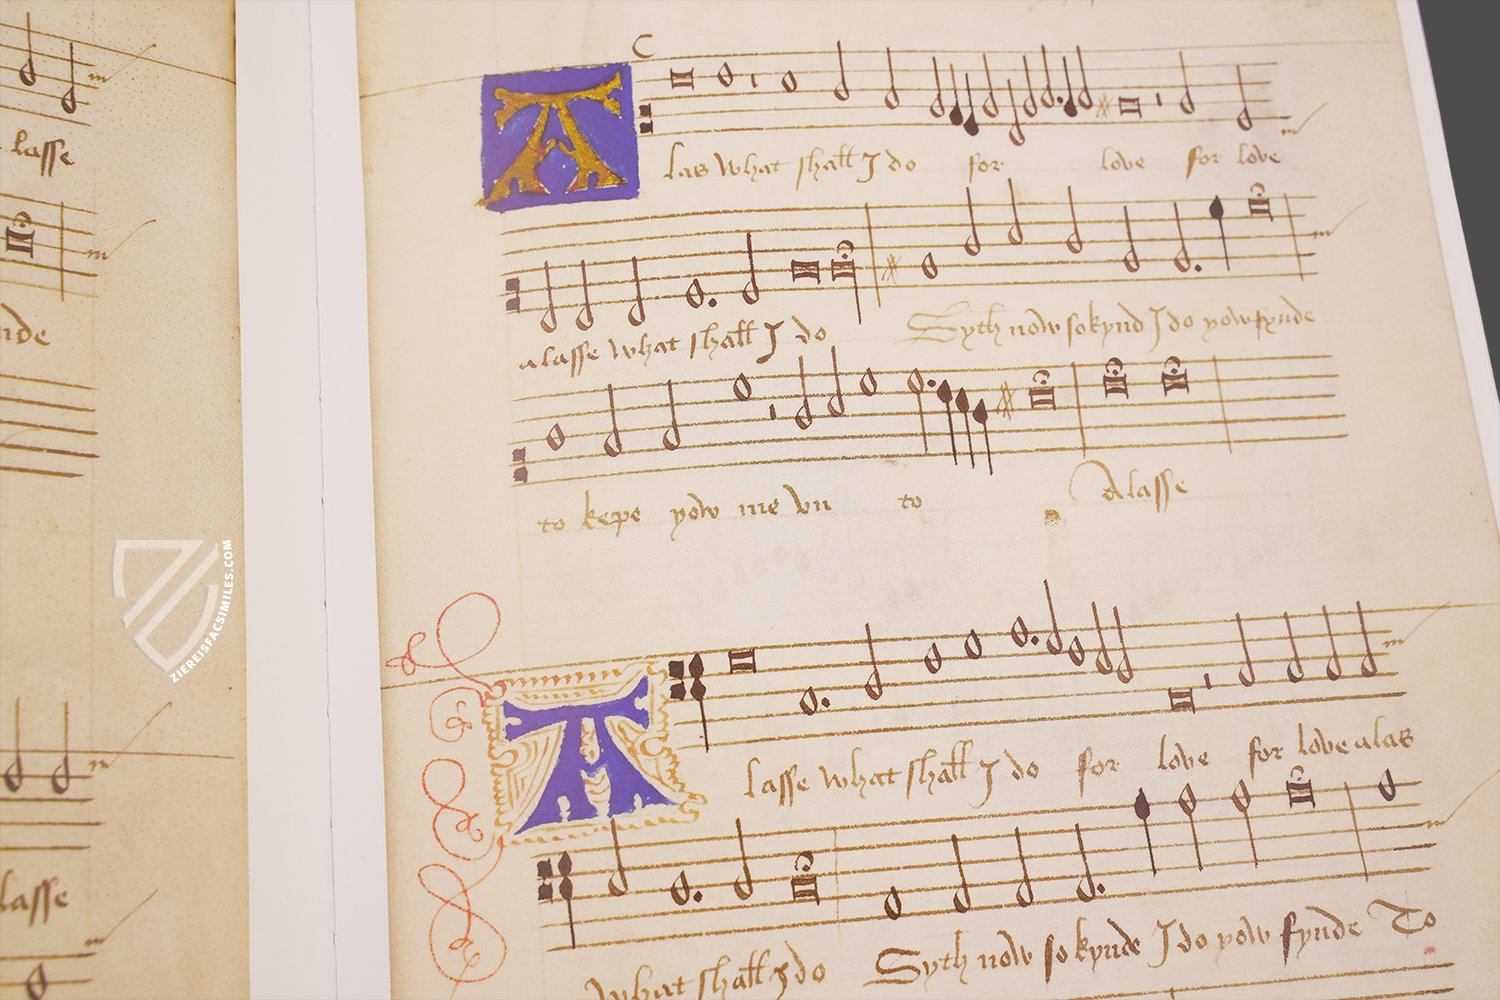 lasse
nde
lasse
A
las what shall I do for love for love
alasse what shall I do Syth now so kynd I do yow fynde
to kepe yow me vn to Alasse
A
lasse what shall I do for love for love alas
what shall I do Syth now so kynde I do yow fynde To
ZIEREISFACSIMILES.COM